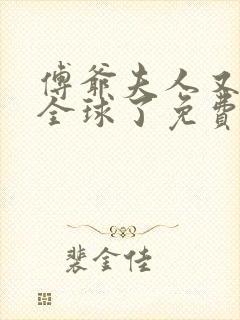 傅爺夫人又
全球了免費
裴金佳